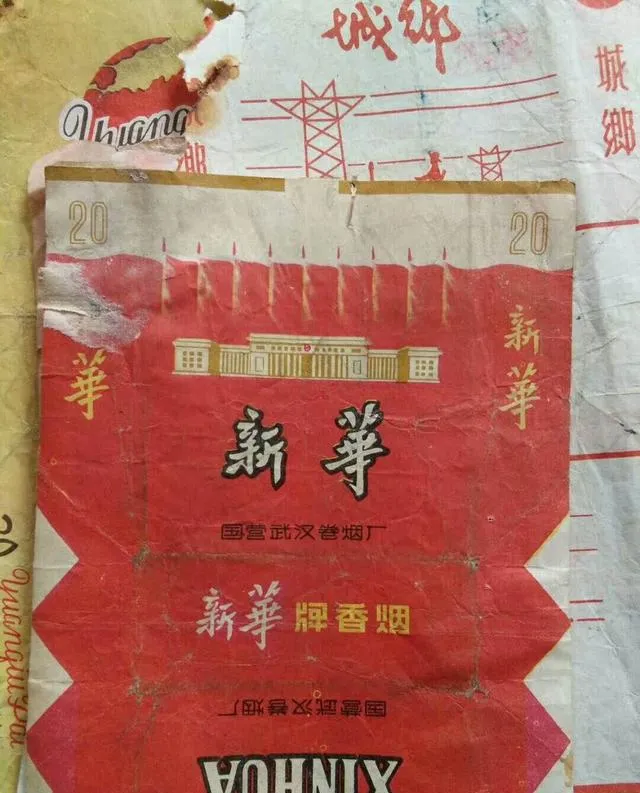 城鄉
城鄉
城鄉
鄉
20
20
新華
華
新華
国营武汉卷烟厂
新華牌香烟
国营武汉卷烟厂
XINHUA